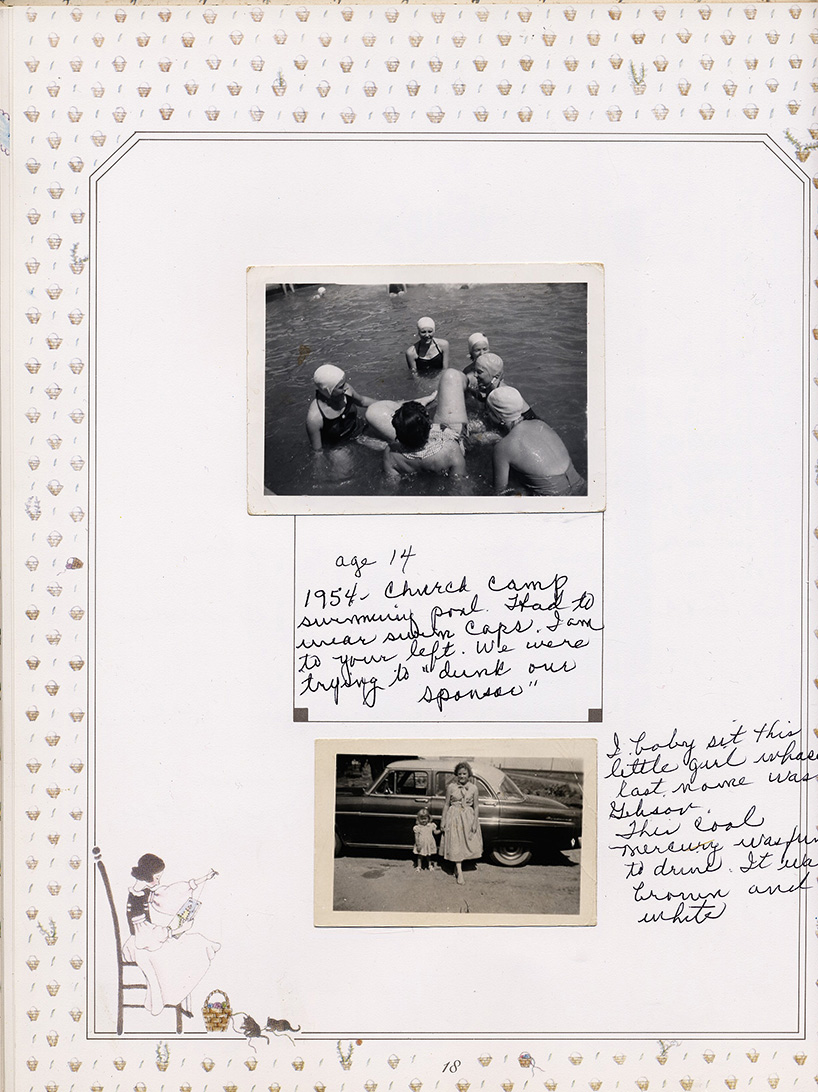 age 14
1954- Church camp
swimming pool. Had to
wear swim caps. I am
to your left. We were
trying to "dunk our
sponsor"
I baby sit this
little girl whose
last name was
Gibson.
This cool
mercury was fun
to drive. It was
brown and
white
18